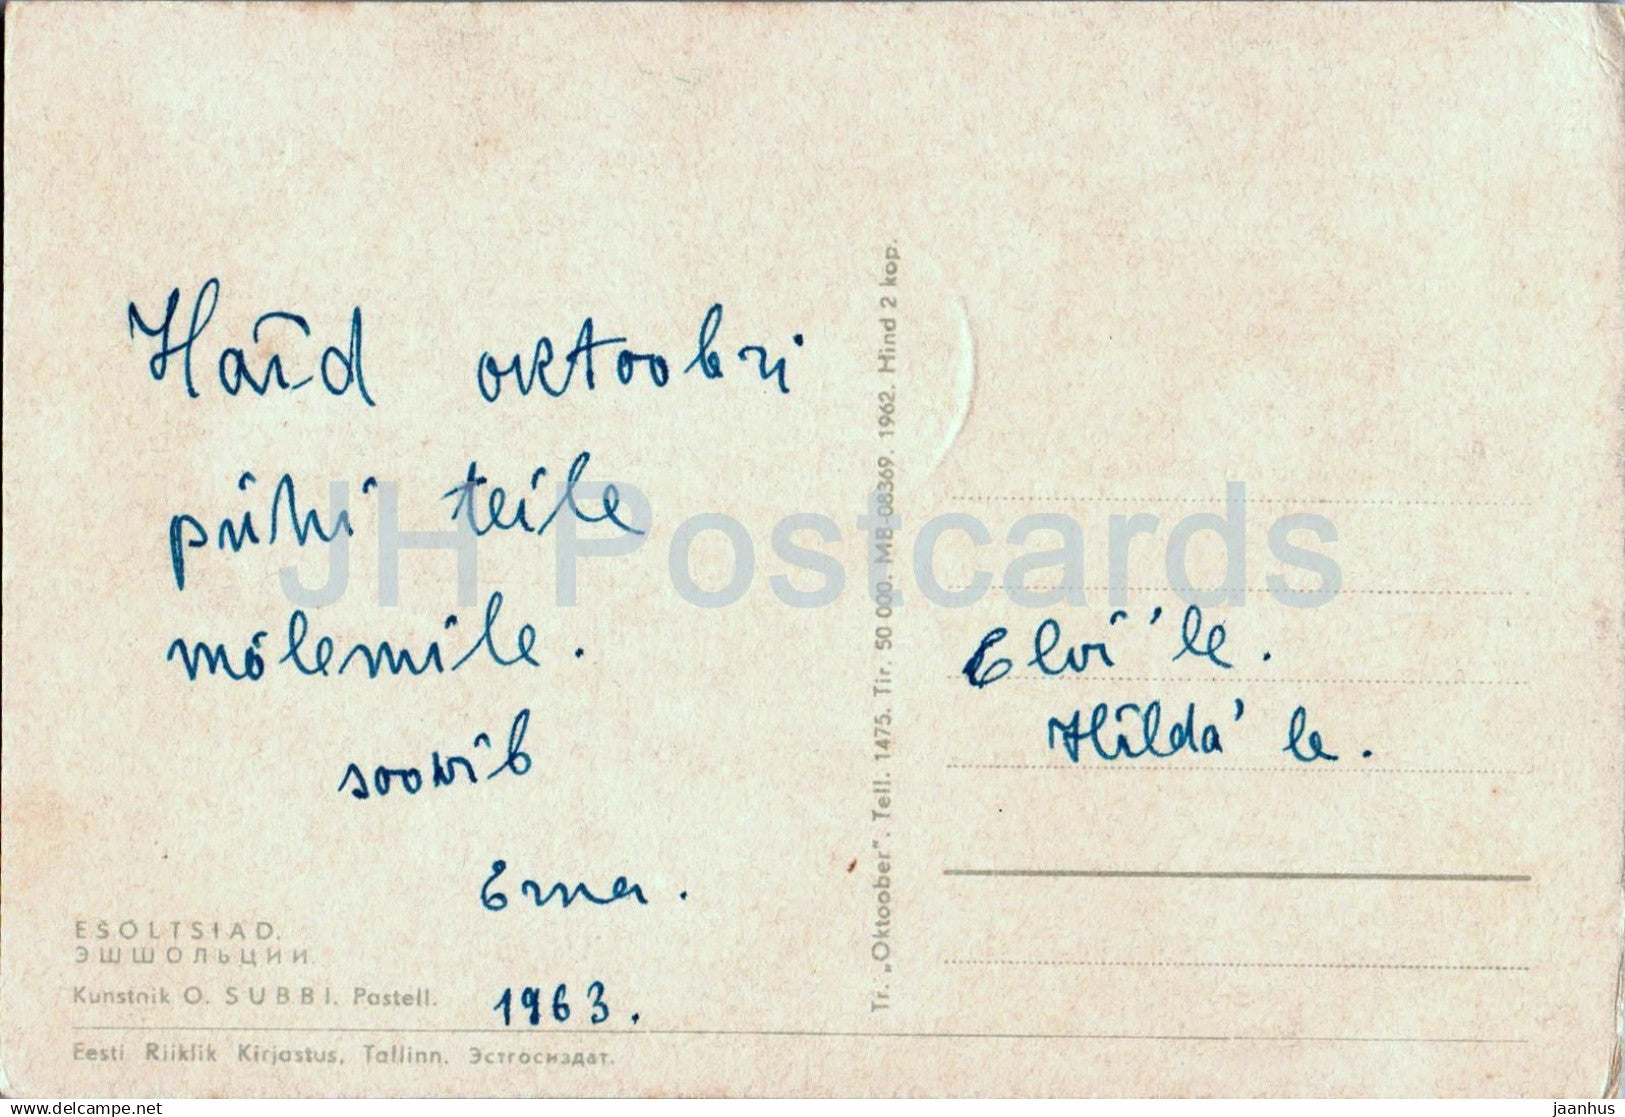 Häid oktoobri
pühi teile
mõlemile.
soovib
Erna.
1963.
EŠOLTSIAD.
ЭШШОЛЬЦИИ.
Kunstnik O. SUBBI. Pastell.
Eesti Riiklik Kirjastus, Tallinn. Эстгосиздат.
Tr. „Oktoober". Tell. 1475. Tir. 50 000. MB-08369. 1962. Hind 2 kop.
Elvi'le.
Hilda'le.
JH Postcards
https://www.delcampe.net
jaanhus